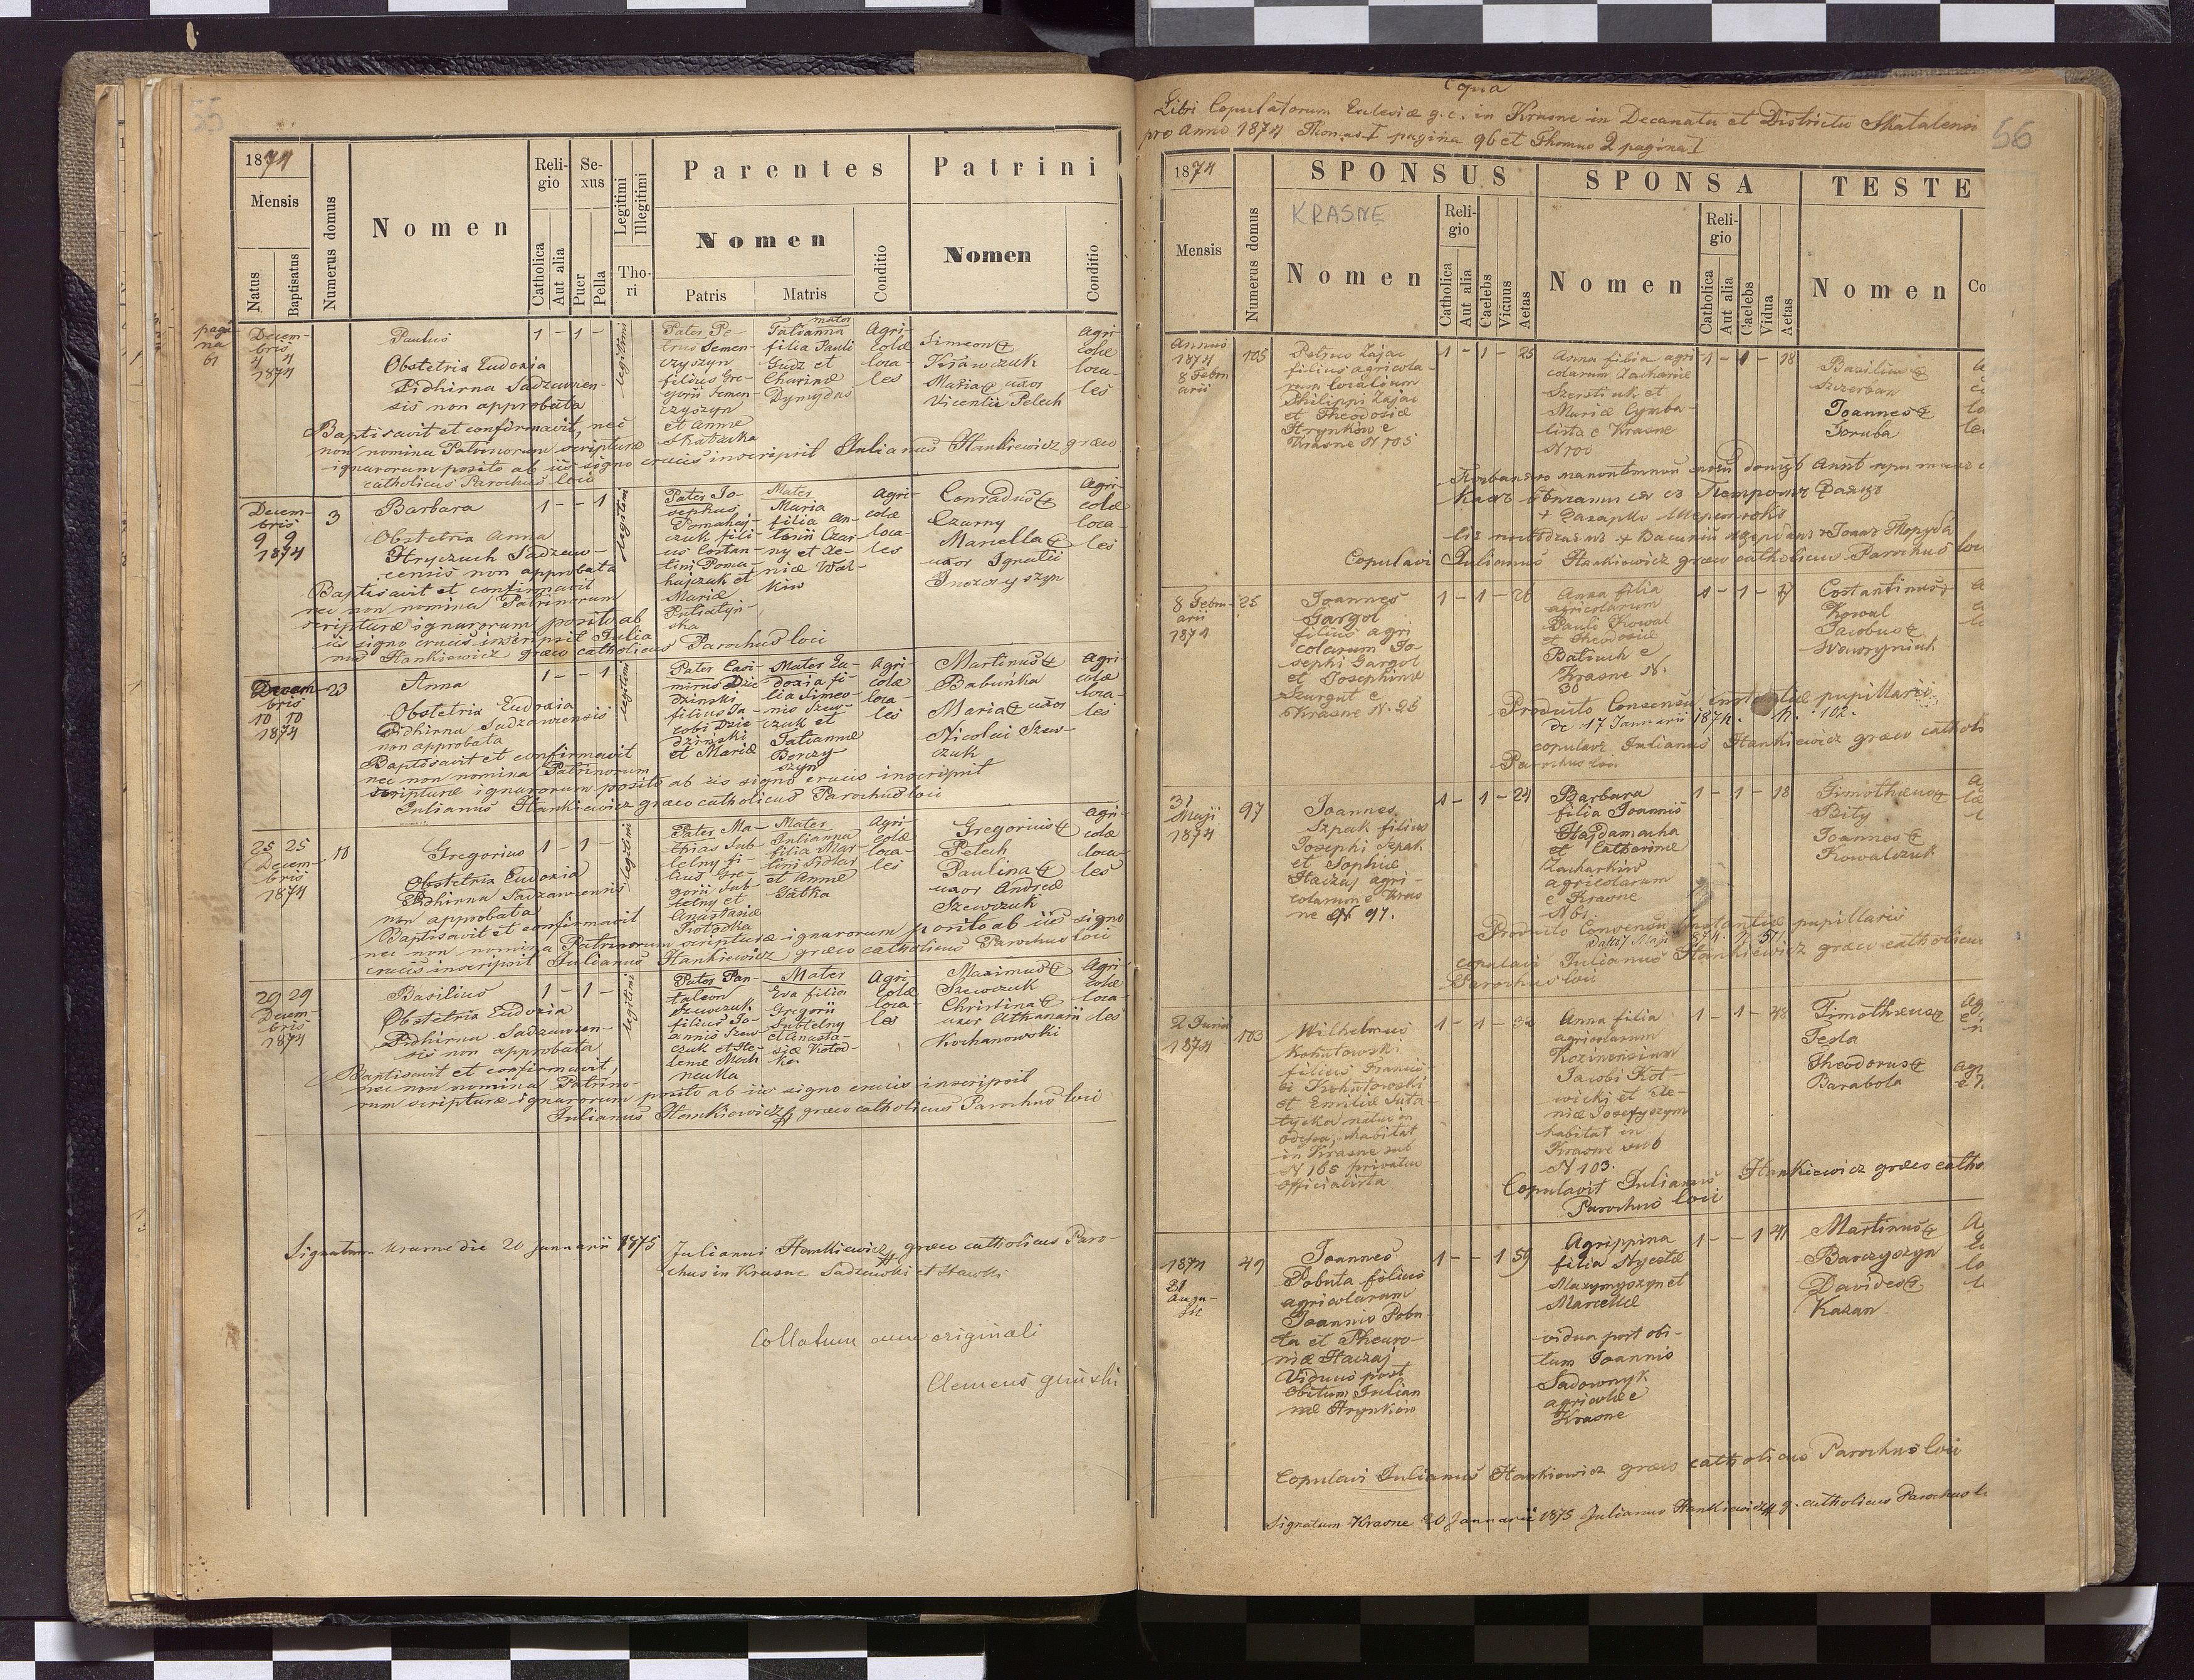 55
1874
Mensis
Natus
Baptisatus
Numerus domus
Nomen
Religio
Catholica
Aut alia
Sexus
Puer
Pella
Legitimi
Illegitimi
Thori
Parentes
Nomen
Patris
Matris
Conditio
Patrini
Nomen
Conditio
pagina
61
Decembris
4 4
1874
Paulus
Obstetrix Eudoxia
Pidhirna Sadzawiensis
non approbata
1 - 1 -
legitimi
Pater Petrus
Semenczyszyn
filius Gregorii
Semenczyszyn
et Annae
mater
Tatianna
filia Pauli
Gudz et
Agricolae
locales
Simeon
Krawczuk
Maria uxor
Vicentii Pelech
Agricolae
locales
Baptisavit et confirmavit, nec
non nomina Patrinorum scripturae
ignarorum posito ab iis signo crucis inscripsit Julianus Hankiewicz graeco
catholicus Parochus loci
Decembris
9 9
1874
3
Barbara
Obstetrix Anna
Hryczuch Sadzawcensis
non approbata
1 - - 1
legitimi
Pater Josephus
Pomahajczuk
filius Costantini
Pomahajczuk et
Mariae
Mater
Maria
filia Antonii
Czarny et Xeniae
Agricolae
locales
Conradus
Czarny
Marcella
uxor Ignatii
Agricolae
locales
Baptisavit et confirmavit
nec non nomina Patrinorum
scripturae ignarorum posito ab
iis signo crucis inscripsit Julianus
Hankiewicz graeco catholicus Parochus loci
Decembris
10 10
1874
23
Anna
Obstetrix Eudoxia
Pidhirna Sadzawiensis
non approbata
1 - - 1
legitimi
Pater Casimirus
Dziedzinski
filius Jacobi
Dziedzinski
et Mariae
Mater Eudoxia
filia Simeonis
Szewczuk et
Tatiannae
Agricolae
locales
Martinus
Babuńka
Maria uxor
Nicolai Szewczuk
Agricolae
locales
Baptisavit et confirmavit
nec non nomina Patrinorum
scripturae ignarorum posito ab iis signo crucis inscripsit
Julianus Hankiewicz graeco catholicus Parochus loci
25 25
Decembris
1874
18
Gregorius
Obstetrix Eudoxia
Pidhirna Sadzawiensis
non approbata
1 - 1 -
legitimi
Pater Mathias
Subtelny
filius Gregorii
Subtelny et
Anastasiae
Mater
Julianna
filia Martini
et Annae
Gatka
Agricolae
locales
Gregorius
Pelech
Paulina
uxor Andreae
Szewczuk
Agricolae
locales
Baptisavit et confirmavit
nec non nomina Patrinorum scripturae ignarorum posito ab iis signo
crucis inscripsit Julianus Hankiewicz graeco catholicus Parochus loci
29 29
Decembris
1874
Basilius
Obstetrix Eudoxia
Pidhirna Sadzawiensis
non approbata
1 - 1 -
legitimi
Pater Pantaleon
Szewczuk
filius Joannis
Szewczuk et Helenae
Mater
Eva filia
Gregorii
Subtelny
et Anastasiae
Agricolae
locales
Maximus
Szewczuk
Christina
uxor Athanasii
Kochanowski
Agricolae
locales
Baptisavit et confirmavit,
nec non nomina Patrinorum
scripturae ignarorum posito ab iis signo crucis inscripsit
Julianus Hankiewicz graeco catholicus Parochus loci
Signatum Krasne die 20 Januarii 1875 Julianus Hankiewicz graeco catholicus Parochus
in Krasne Sadzawki et Stawki
Collatum cum originali
Clemens
Copia
Libri Copulatorum Ecclesiae g.c. in Krasne in Decanatu et Districtu Skalatensi
pro Anno 1874 Thomus I pagina 96 et Thomus 2 pagina I
56
1874
Mensis
Numerus domus
SPONSUS
KRASNE
Nomen
Religio
Catholica
Aut alia
Caelebs
Viduus
Aetas
SPONSA
Nomen
Religio
Catholica
Aut alia
Caelebs
Vidua
Aetas
TESTE
Nomen
Co
Annus
1874
8 Februarii
105
Petrus Zając
filius agricolarum
localium
Philippi Zając
et Theodosiae
Hrynków e
Krasne N 105
1 - 1 - 25
Anna filia agricolarum
Zachariae
Szerstiuk et
Mariae Cymbalista
e Krasne
N 100
1 - 1 - 18
Basilius
Szczerban
Joannes
Toruba
Copulavi Julianus Hankiewicz graeco catholicus Parochus loci
8 Februarii
1874
25
Joannes
Gargol
filius agricolarum
Josephi Gargol
et Josephinae
Szurgut e
Krasne N. 26
1 - 1 - 26
Anna filia
agricolarum
Pauli Kowal
et Theodosiae
Babiuk e
Krasne N.
30
1 - 1 - 17
Costantinus
Kowal
Jacobus
Wawryniuk
Producto Consensu instantiae pupillaris
de 17 Januarii 1874. N. 102.
copulavi Julianus Hankiewicz graeco catholi
Parochus loci
31
Maji
1874
97
Joannes
Szpak filius
Josephi Szpak
et Sophiae
Haizaj agricolarum
e Krasne
N 97.
1 - 1 - 24
Barbara
filia Joannis
Hajdamacha
et Catherinae
Zacharkiw
agricolarum
e Krasne
N 61
1 - 1 - 18
Timotheus
Bity
Joannes
Kowalczuk
Producto Consensu instantiae pupillaris
copulavi Julianus Hankiewicz graeco catholicus
Parochus loci
2 Junii
1874
103
Wilhelmus
Kohutowski
filius Francisci
Kohutowski
et Emiliae
natus in
Odessa, habitat
in Krasne sub
N 165 privatus
officialista
1 - 1 - 32
Anna filia
agricolarum
Kozinensium
Jacobi Kotwicki
et Xeniae
Josefyszym
habitat in
Krasne sub
N 103.
1 - 1 - 28
Timotheus
Tesla
Theodorus
Barabola
Copulavit Julianus Hankiewicz graeco catho
Parochus loci
1874
21
Augusti
49
Joannes
Pobuta filius
agricolarum
Joannis Pobuta
et Pheuroniae
Haizaj
Viduus post
obitum Juliannae
Hrynków
1 - - 1 59
Agrippina
filia Nycetae
Maxymyszyn et
Marcellae
vidua post obitum
Joannis
Sadownyk
agricolae e
Krasne
1 - - 1 41
Martinus
Barczyszyn
Davides
Kazan
Copulavi Julianus Hankiewicz graeco catholicus Parochus loci
Signatum Krasne 20 Januarii 1875 Julianus Hankiewicz g. catholicus Parochus